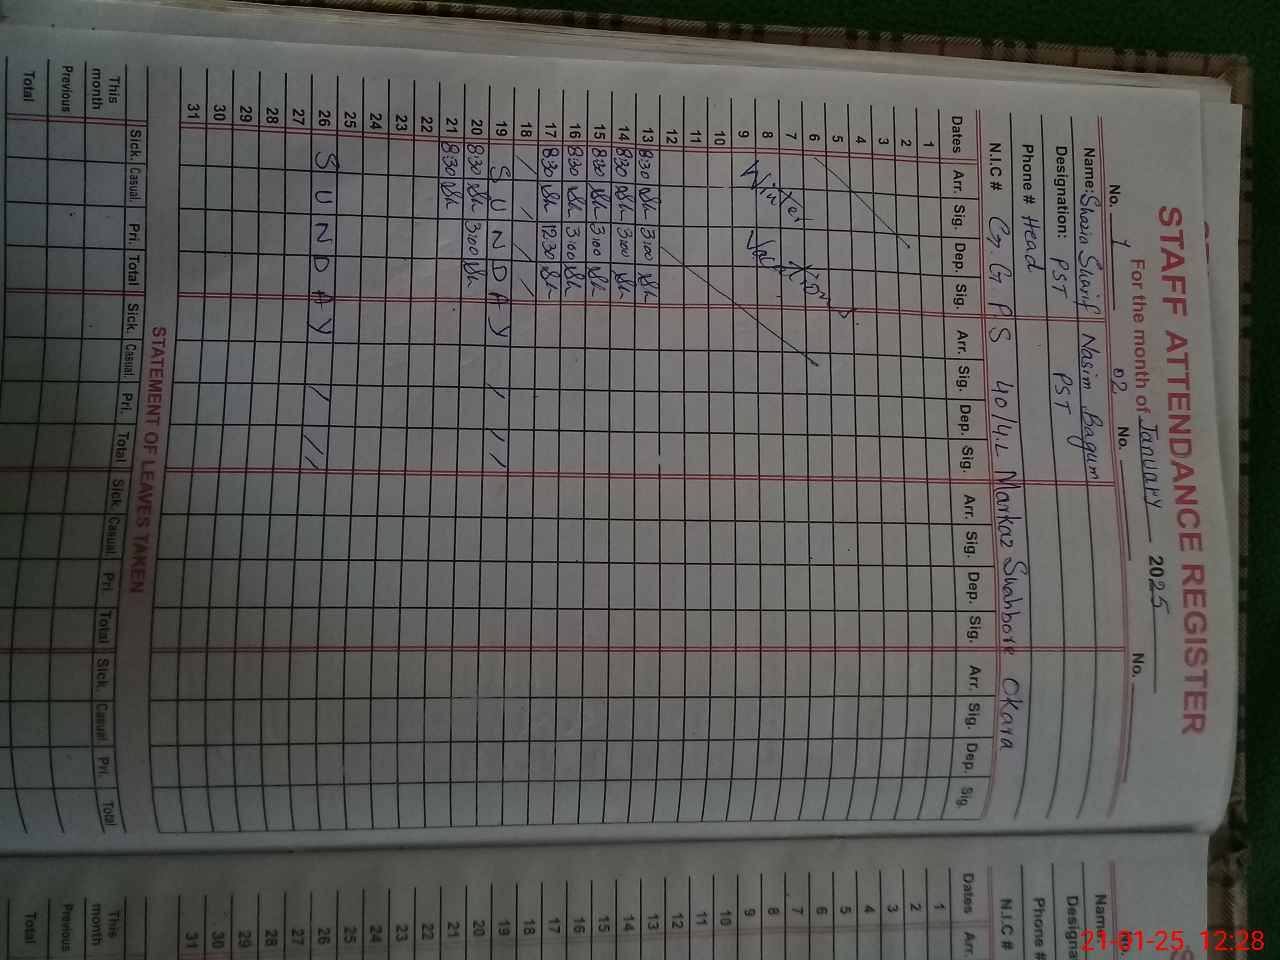 STAFF ATTENDANCE REGISTER
For the month of January 2025
No. 1 02 No. No.
Name: Shazia Sharif Nasim Bagum
Designation: PST PST
Phone # Head
N.I.C # G.G P S 40/4.L Markaz Shahbore Okara
Dates Arr. Sig. Dep. Sig. Arr. Sig. Dep. Sig. Arr. Sig. Dep. Sig. Arr. Sig. Dep. Sig.
1
2
3
4
5
6
7
8
9
10
11
12
13 830 3100
14 830 3100
15 830 3100
16 830 3100
17 830 1230
18
19 SUNDAY
20 830 3100
21 830
22
23
24
25
26 SUNDAY
27
28
29
30
31
STATEMENT OF LEAVES TAKEN
Sick. Casual. Pri. Total Sick. Casual. Pri. Total Sick. Casual. Pri Total Sick. Casual. Pri. Total
This month
Previous
Total
Name
Designa
Phone #
N.I.C #
Dates Arr.
1
2
3
4
5
6
7
8
9
10
11
12
13
14
15
16
17
18
19
20
21
22
23
24
25
26
27
28
29
30
31
This month
Previous
Total
21-01-25 12:28